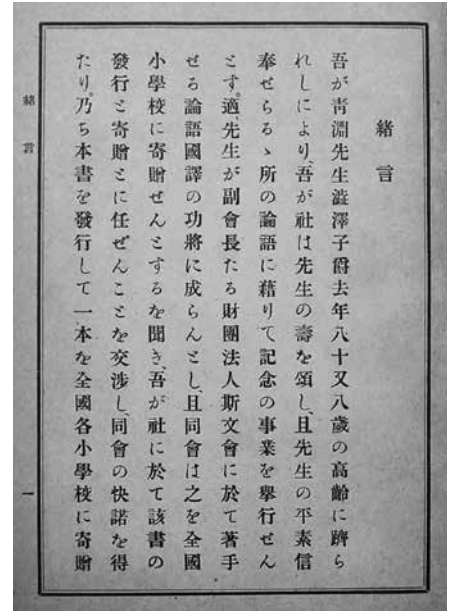 緒言
吾が靑淵先生澁澤子爵去年八十又八歲の高齡に躋ら
れしにより、吾が社は先生の壽を頌し、且先生の平素信
奉せらるゝ所の論語に藉りて記念の事業を擧行せん
とす。適先生が副會長たる財團法人斯文會に於て著手
せる論語國譯の功將に成らんとし、且同會は之を全國
小學校に寄贈せんとするを聞き、吾が社に於て該書の
發行と寄贈とに任ぜんことを交涉し、同會の快諾を得
たり。乃ち本書を發行して一本を全國各小學校に寄贈
緒言
一